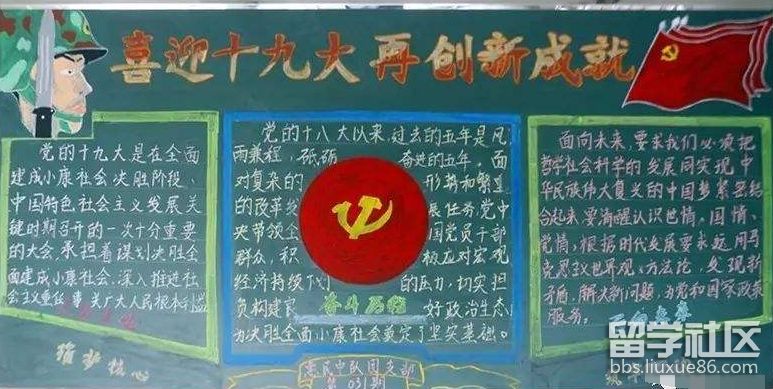 喜迎十九大 再创新成就
党的十九大是在全面
建成小康社会决胜阶段、
中国特色社会主义发展关
键时期召开的一次十分重要
的大会,承担着谋划决胜全
面建成小康社会,深入推进社
会主义重任 事关广大人民根本利益
党的十八大以来,过去的五年是风
雨兼程,砥砺 奋进的五年。面
对复杂的 形势和繁重
的改革发 展任务,党中
央带领全 国党员干部
群众,积 极应对宏观
经济持续下 的压力,切实担
负构建良 好政治生态
为决胜全面小康社会奠定了坚实基础。
奋斗历程
面向未来,要求我们必须把
哲学社会科学的发展同实现中
华民族伟大复兴的中国梦紧密结
合起来,要清醒认识世情、国情、
党情,根据时代发展要求运用马
克思主义世界观、方法论,发现新
矛盾,解决新问题,为党和国家政策
服务。
中队团支部
第 031期
留学社区
bbs.liuxue86.com